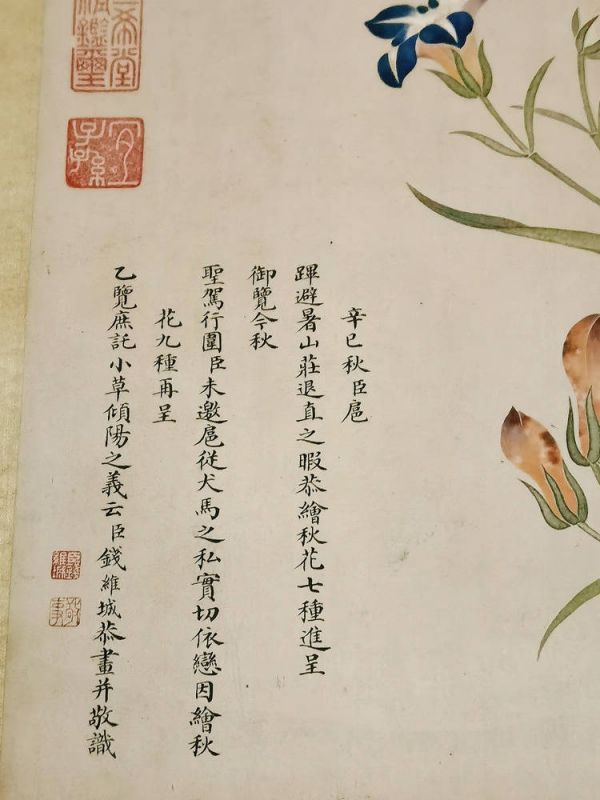 辛巳秋臣扈
蹕避暑山莊退直之暇恭繪秋花七種進呈
御覽今秋
聖駕行圍臣未邀扈從犬馬之私實切依戀因繪秋
花九種再呈
乙覽庶託小草傾陽之義云臣錢維城恭畫并敬識
宜子孫
臣錢維城
敬事